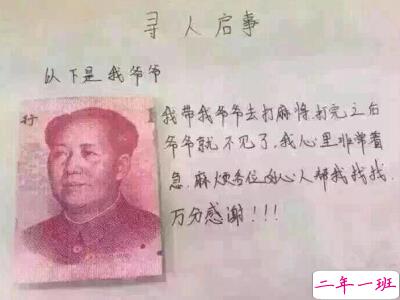 寻人启事
以下是我爷爷
我带我爷爷去打麻将,打完之后
爷爷就不见了,我心里非常着
急,麻烦各位好心人帮我找找,
万分感谢!!!
行
二年一班